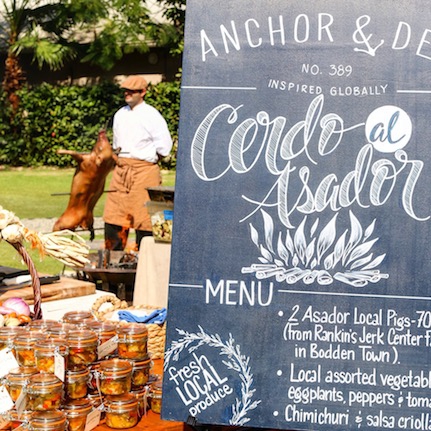 ANCHOR & DE
NO. 389
INSPIRED GLOBALLY
Cerdo al
Asador
MENU
• 2 Asador Local Pigs-70
(from Rankin's Jerk Center f
in Bodden Town).
• Local assorted vegetabl
eggplants, peppers & toma
• Chimichuri & salsa criol
fresh
LOCAL
produce